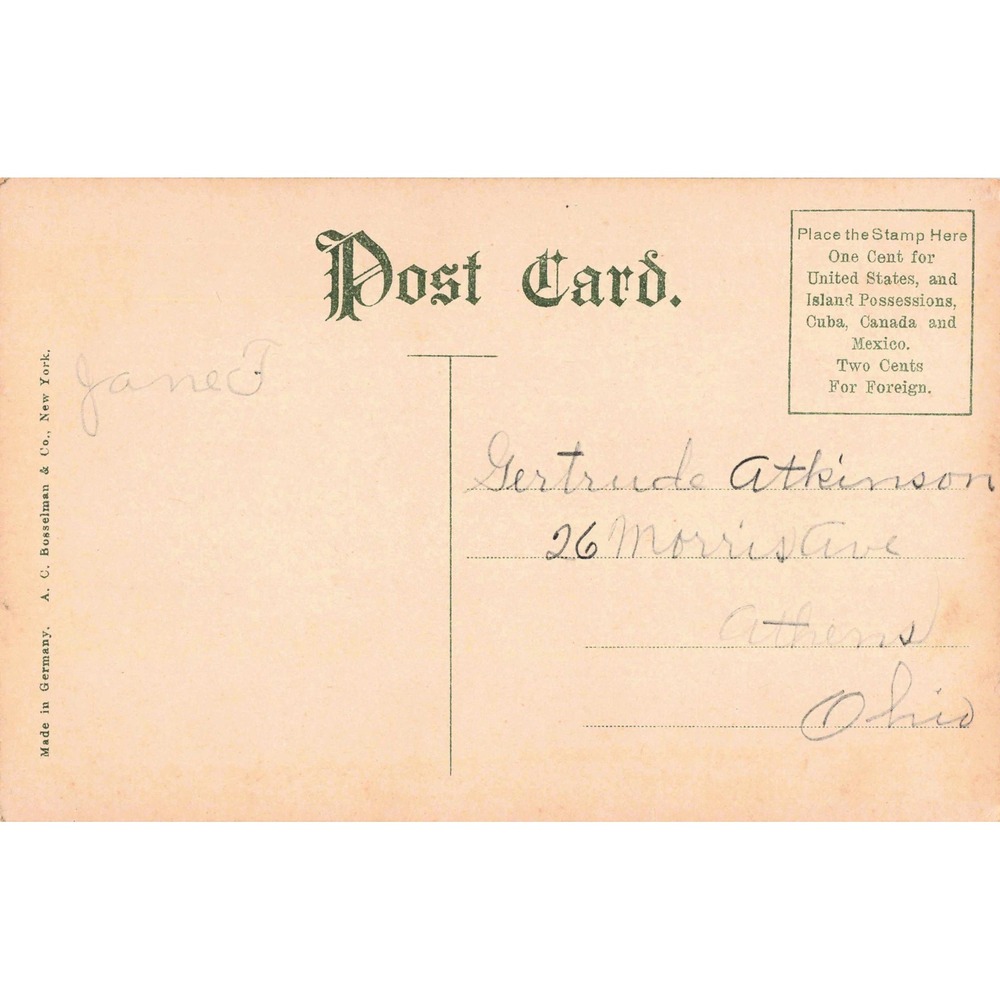 Post Card.
Place the Stamp Here
One Cent for
United States, and
Island Possessions,
Cuba, Canada and
Mexico.
Two Cents
For Foreign.
Jane F
Gertrude Atkinson
26 Morris Ave
Athens
Ohio
Made in Germany. A. C. Bosselman & Co., New York.